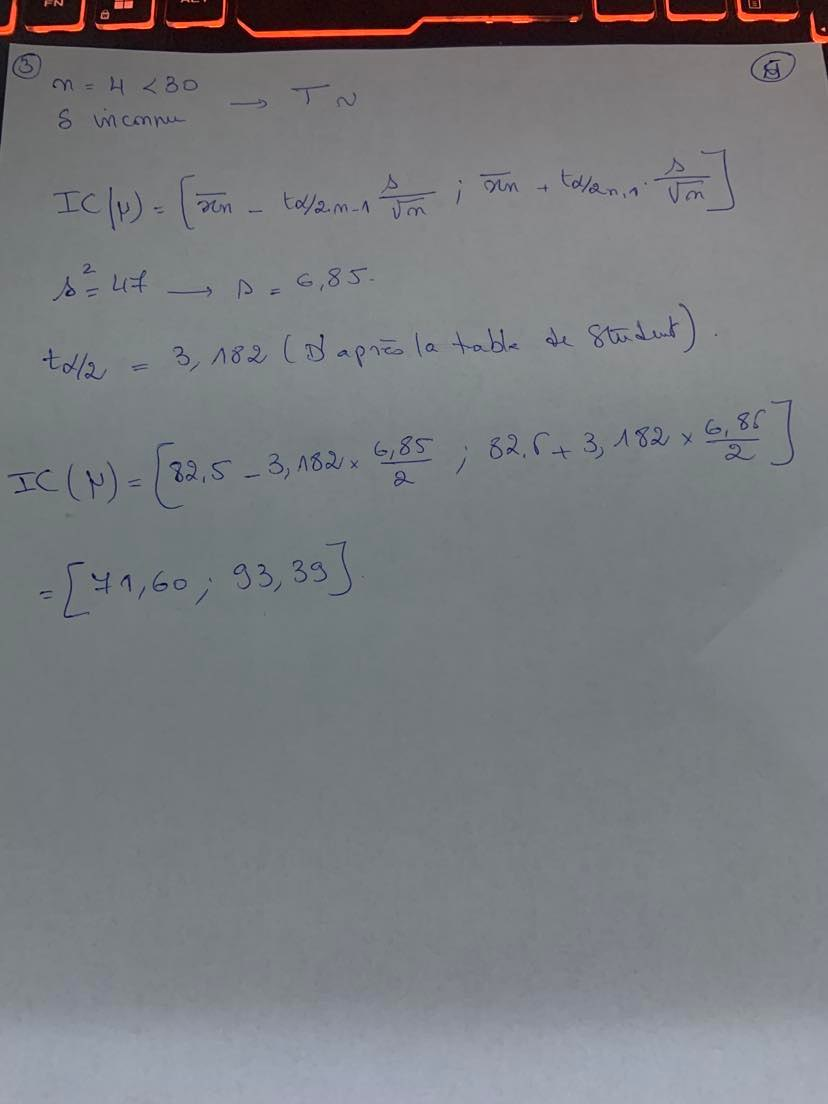 ③ ⑤
n = 4 < 30
δ inconnu → T N
IC(μ) = [x̄n - tα/2.n-1 s/√n ; x̄n + tα/2n,1. s/√n]
s² = 47 → s = 6,85.
tα/2 = 3,182 (D'après la table de Student).
IC(μ) = [82.5 - 3,182 × 6,85/2 ; 82.5 + 3,182 × 6,85/2]
= [71,60 ; 93,39].